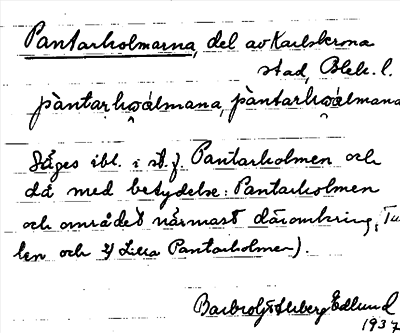 Pantarholmarna, del av Karlskrona
stad, Blek. l.
pàntarhωålmana, pàntarhωålmana
Säges ibl. i st. f. Pantarholmen och
då med betydelse: Pantarholmen
och området närmast däromkring,
len och Lilla Pantarholmen).
Edlund
1937